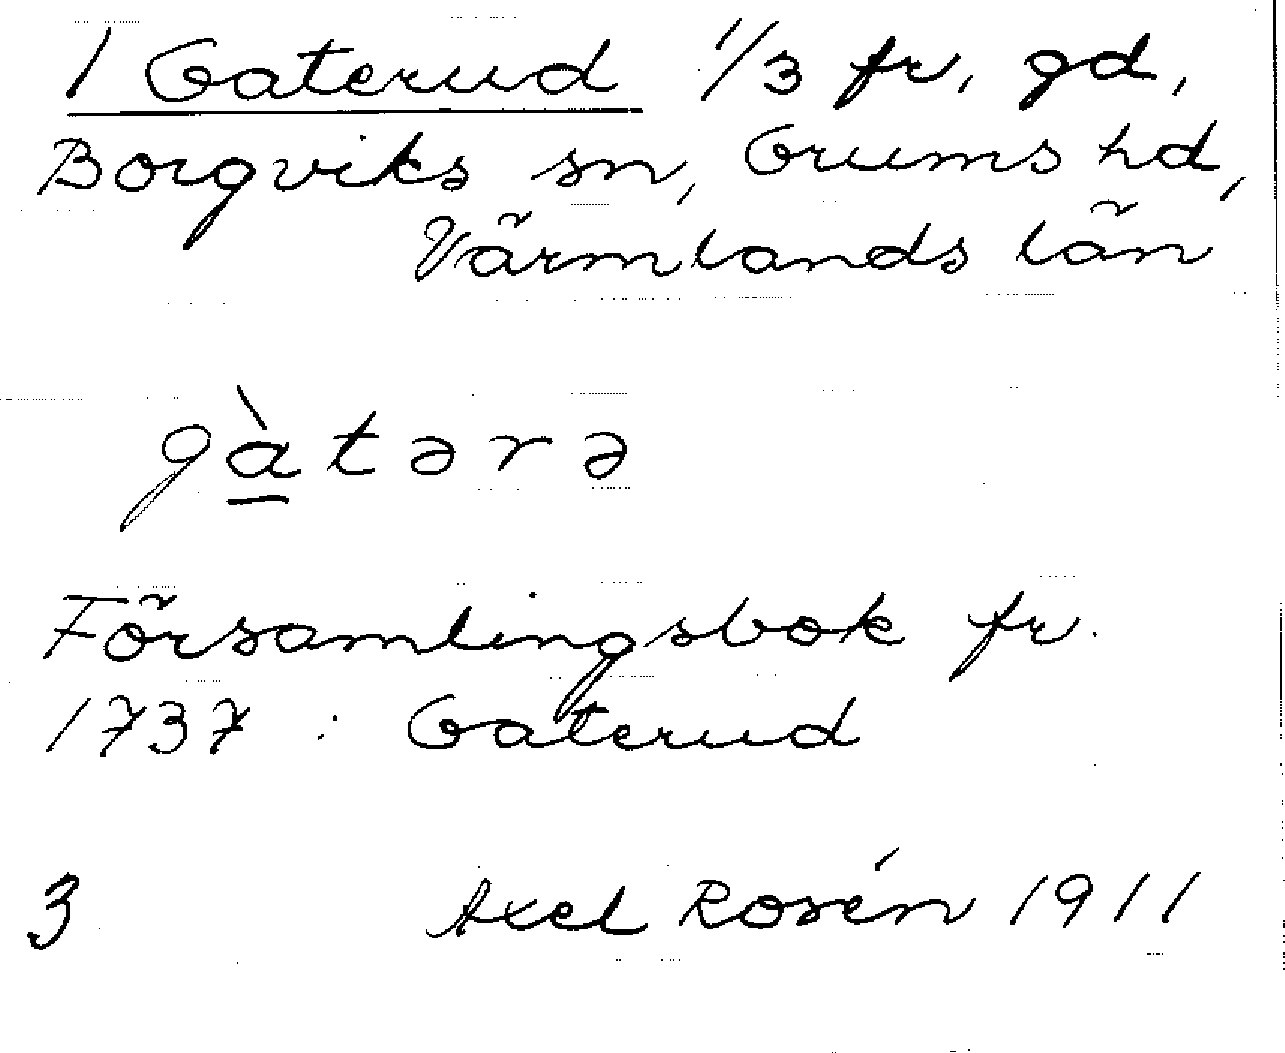 1 Gaterud 1/3 fr, gd,
Borgviks sn, Grums hd,
Värmlands län
gàtərə
Församlingsbok fr.
1737 : Gaterud
3 Axel Rosén 1911